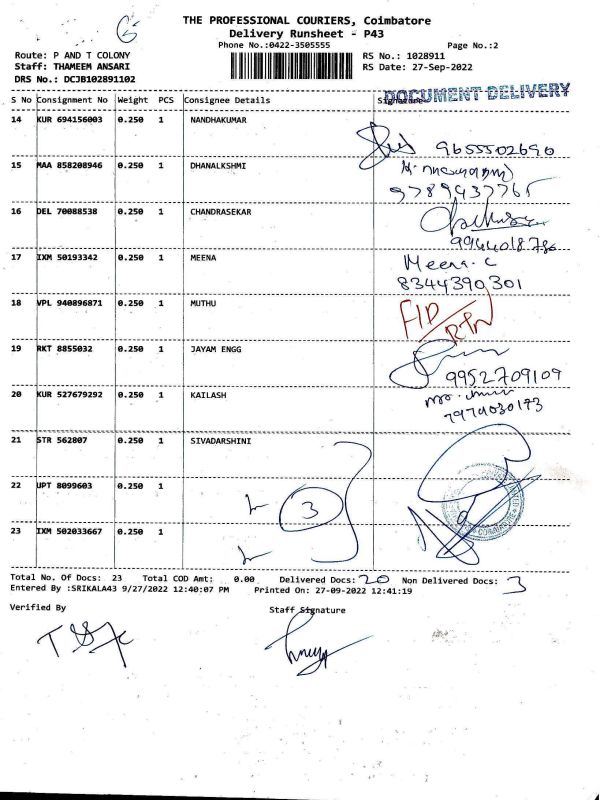 THE PROFESSIONAL COURIERS, Coimbatore
Delivery Runsheet - P43
Phone No.:0422-3505555
Page No.:2
Route: P AND T COLONY
RS No.: 1028911
Staff: THAMEEM ANSARI
RS Date: 27-Sep-2022
DRS No.: DCJB102891102
DOCUMENT DELIVERY
S No Consignment No Weight PCS Consignee Details Signature
14 KUR 694156003 0.250 1 NANDHAKUMAR
9655502690
15 MAA 858208946 0.250 1 DHANALKSHMI
9789437765
16 DEL 70088538 0.250 1 CHANDRASEKAR
9944018786
17 IXM 50193342 0.250 1 MEENA Meena. C
8344390301
18 VPL 940896871 0.250 1 MUTHU FID/RTN
19 RKT 8855032 0.250 1 JAYAM ENGG
9952709109
20 KUR 527679292 0.250 1 KAILASH
7974030173
21 STR 562807 0.250 1 SIVADARSHINI
22 UPT 8099603 0.250 1
3
23 IXM 502033667 0.250 1
Total No. Of Docs: 23 Total COD Amt: 0.00 Delivered Docs: 20 Non Delivered Docs: 3
Entered By :SRIKALA43 9/27/2022 12:40:07 PM Printed On: 27-09-2022 12:41:19
Verified By Staff Signature